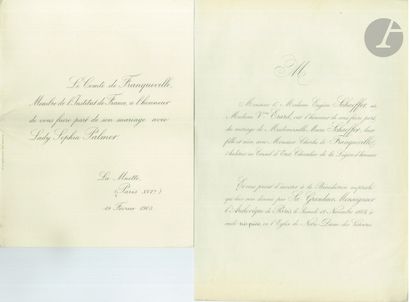 Le Comte de Franqueville,
Membre de l'Institut de France, a l'honneur
de vous faire part de son mariage avec
Lady Sophia Palmer.
La Muette
(Paris XVIe)
19 Février 1903
M
Monsieur et Madame Eugène Schaeffer, et
Madame Vve Erard, ont l'honneur de vous faire part
du mariage de Mademoiselle Marie Schaeffer, leur
fille et nièce, avec Monsieur Charles de Franqueville,
Auditeur au Conseil d'Etat, Chevalier de la Légion d'honneur
Et vous prient d'assister à la Bénédiction nuptiale
qui leur sera donnée par Sa Grandeur Monseigneur
l'Archevêque de Paris, le Samedi 12 Novembre 1864, à
midi très précis, en l'Eglise de Notre-Dame des Victoires